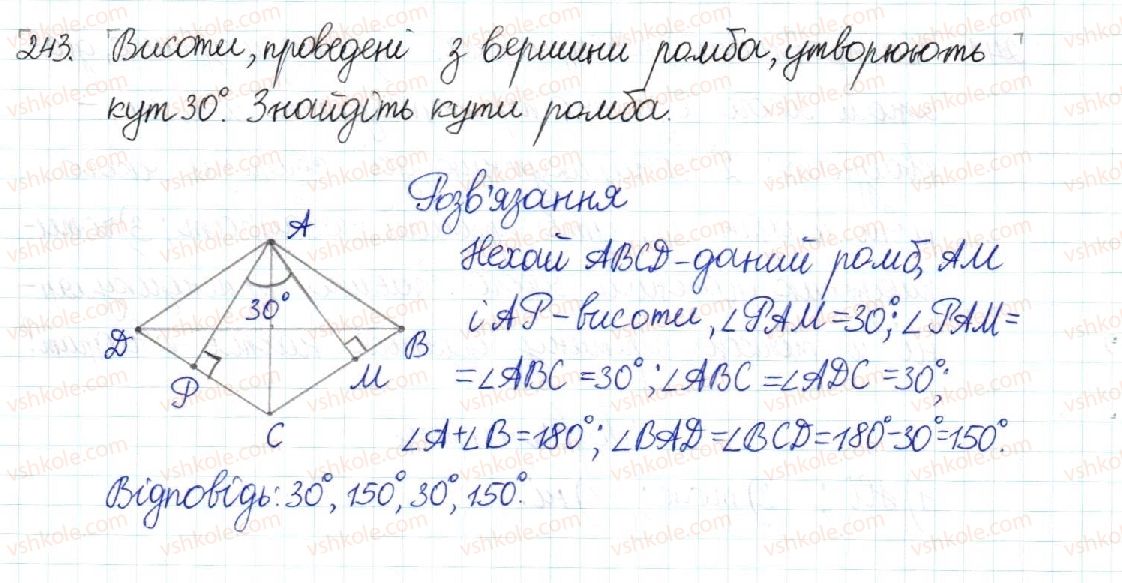 243. Висоти, проведені з вершини ромба, утворюють
кут 30°. Знайдіть кути ромба.
Розв'язання
Нехай ABCD - даний ромб, AM
і AP - висоти, ∠PAM = 30°; ∠PAM =
= ∠ABC = 30°; ∠ABC = ∠ADC = 30°;
∠A + ∠B = 180°; ∠BAD = ∠BCD = 180° - 30° = 150°.
Відповідь: 30°, 150°, 30°, 150°.
A
30°
D
B
P
M
C
vshkole.com